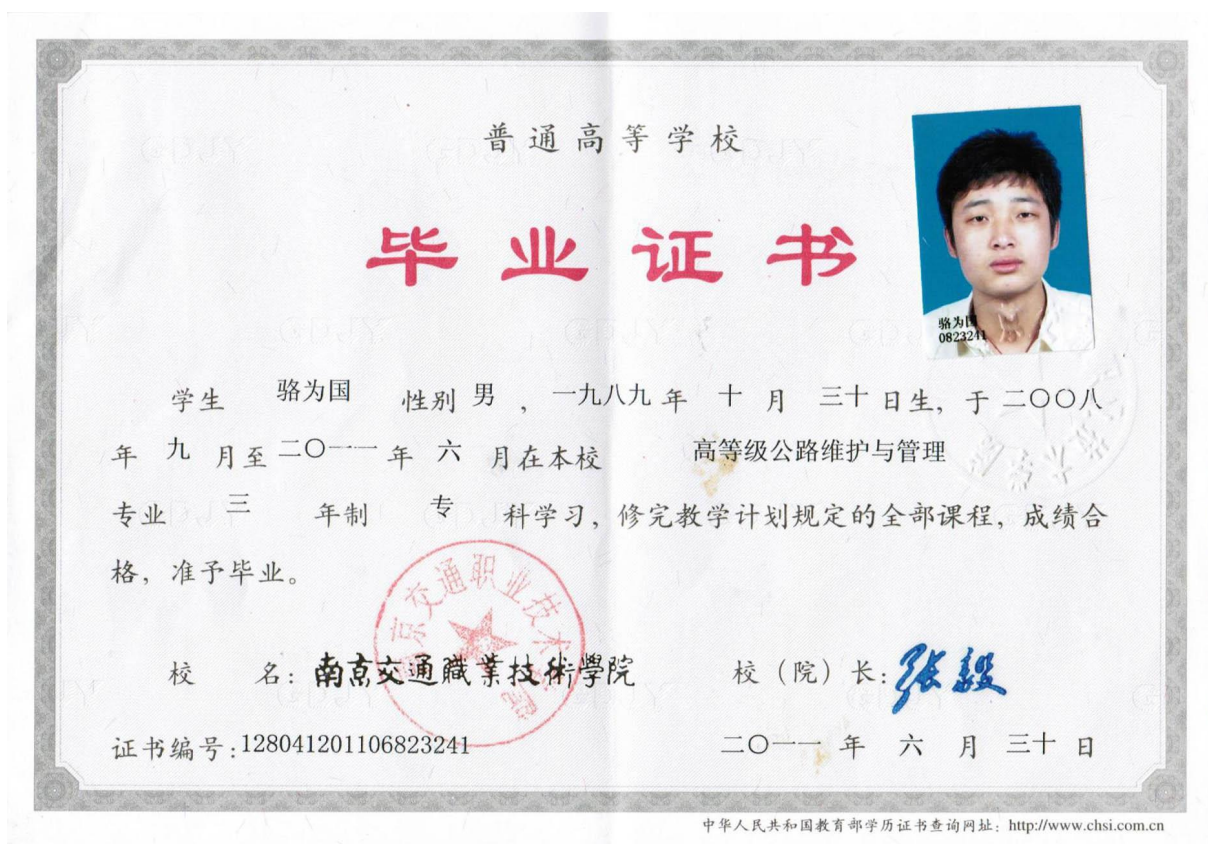 普通高等学校
毕业证书
骆为国
0823241
学生 骆为国 性别 男 ，一九八九 年 十 月 三十 日生，于 二〇〇八
年 九 月至 二〇一一 年 六 月在本校 高等级公路维护与管理
专业 三 年制 专 科学习，修完教学计划规定的全部课程，成绩合
格，准予毕业。
南京交通职业技术学院
校 名：南京交通職業技術學院 校（院）长：张毅
证书编号：128041201106823241 二〇一一 年 六 月 三十 日
中华人民共和国教育部学历证书查询网址：http://www.chsi.com.cn